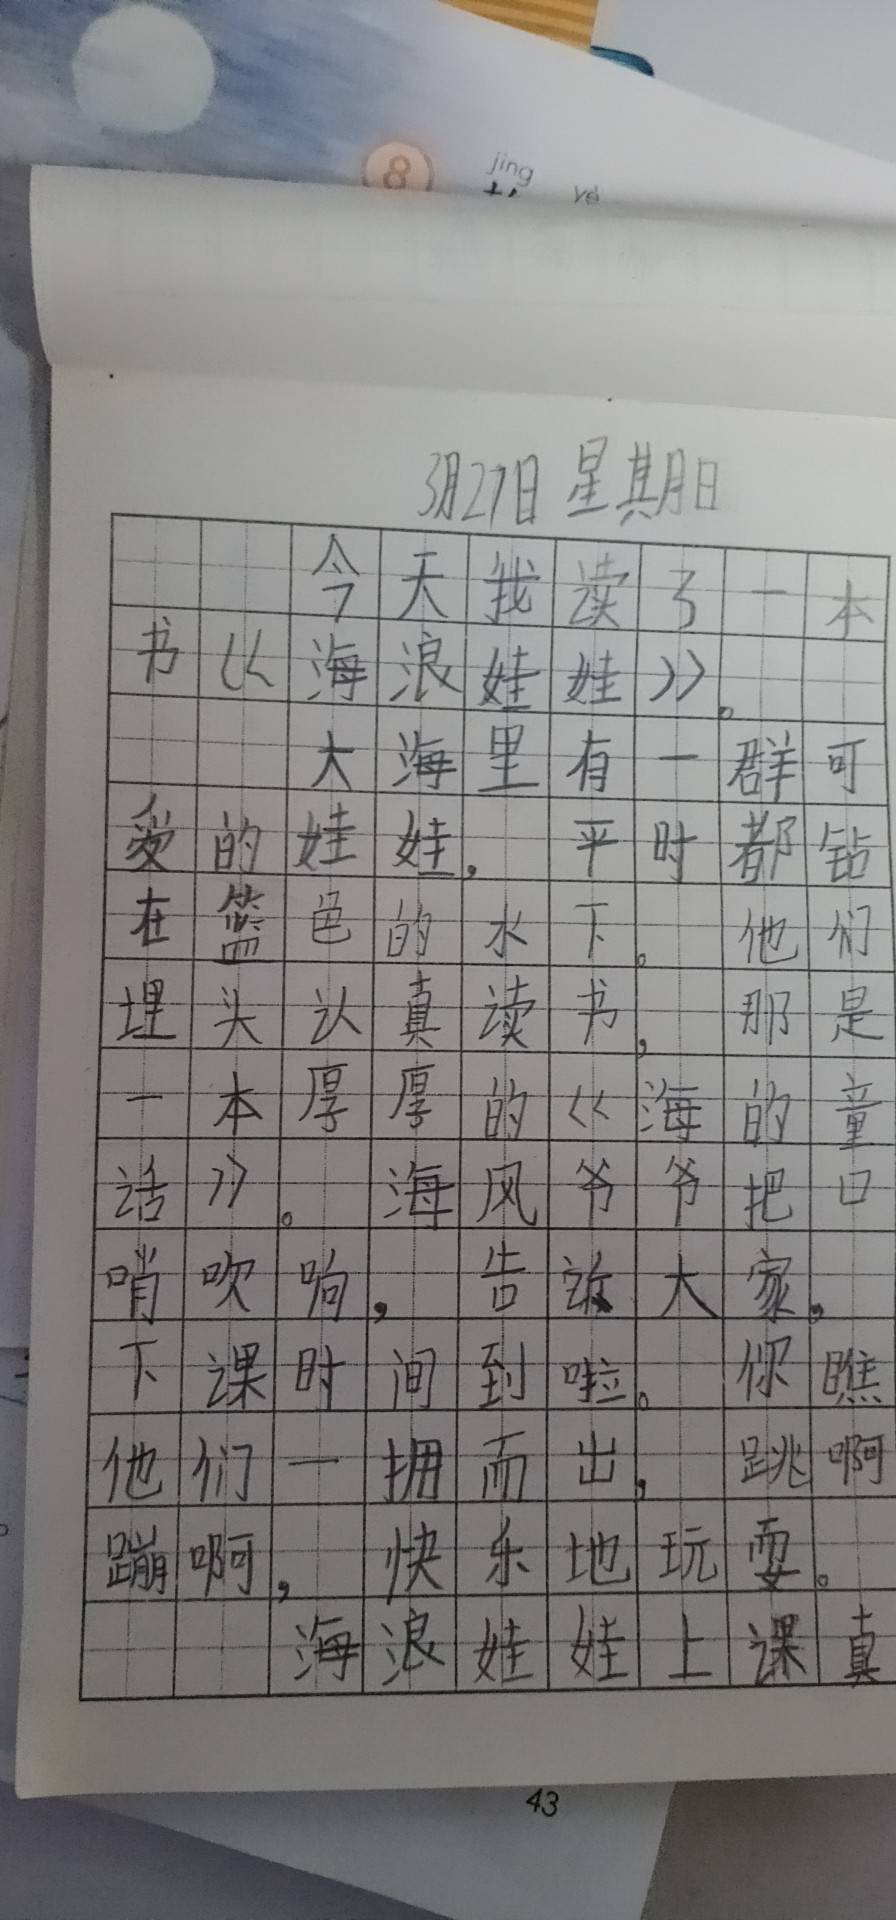 8
jǐng
yè
3月27日 星期日
今天我读了一本
书《海浪娃娃》。
大海里有一群可
爱的娃娃，平时都钻
在篮色的水下。他们
埋头认真读书，那是
一本厚厚的《海的童
话》。海风爷爷把口
哨吹响，告诉大家，
下课时间到啦。你瞧
他们一拥而出，跳啊
蹦啊，快乐地玩耍。
海浪娃娃上课真
43